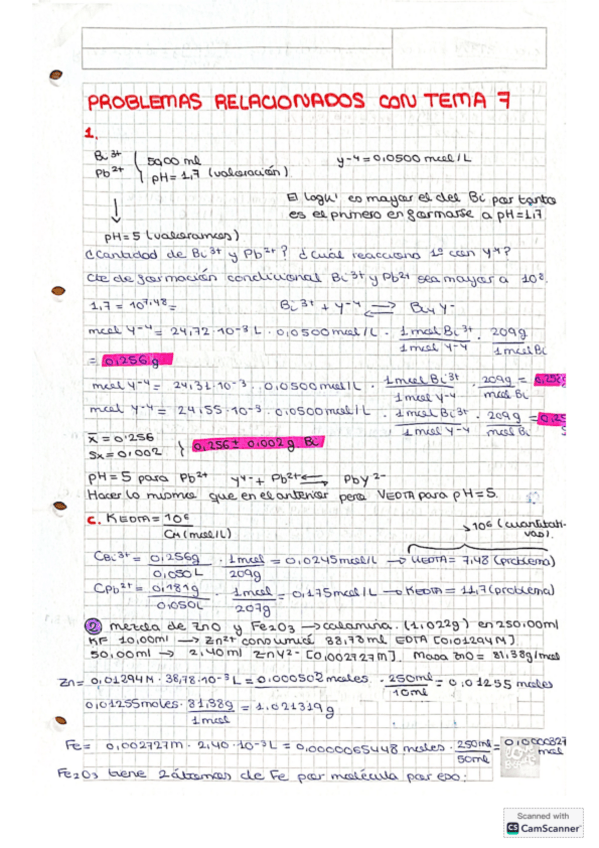 PROBLEMAS RELACIONADOS CON TEMA 7
1.
Bi 3+
Pb 2+
50,00 ml
pH = 1,7 (valoración)
y-4 = 0,0500 mol/L
El logK' es mayor el del Bi por tanto
es el primero en formarse a pH=1,7
pH=5 (valoramos)
¿Cantidad de Bi 3+ y Pb 2+? ¿Cuál reacciona 1º con y4?
Cte de formación condicional Bi 3+ y Pb2+ sea mayor a 10 8.
1,7 = 10 7,48 =
Bi 3+ + y-4 ⇌ Biy-
mol y-4 = 24,72·10-3 L · 0,0500 mol/L · 1 mol Bi 3+ / 1 mol y-4 · 209g / 1 mol Bi
= 0,256 g
mol y-4 = 24,31·10-3 · 0,0500 mol/L · 1 mol Bi 3+ / 1 mol y-4 · 209g / mol Bi =
mol y-4 = 24,55·10-3 · 0,0500 mol/L · 1 mol Bi 3+ / 1 mol y-4 · 209 g / mol Bi =
x̄ = 0'256
Sx = 0'002
0,256 ± 0.002 g Bi
pH = 5 para Pb 2+ y4- + Pb 2+ ⇌ Pby 2-
Hacer lo mismo que en el anterior pero VEDTA para pH=5.
c. KEDTA = 10 6 / CM (mol/L)
→ 10 6 (cuantitativas).
CBi 3+ = 0,256g / 0,050L · 1 mol / 209g = 0,0245 mol/L → KEDTA = 7,48 (problema)
CPb 2+ = 0,181g / 0,050L · 1 mol / 207g = 0,175 mol/L → KEDTA = 11,7 (problema)
2 mezcla de ZnO y Fe2O3 → calamina. (1,022g) en 250,00ml
KF 10,00ml → Zn2+ consumió 38,78 ml EDTA [0,01294M]
50,00 ml → 2,40 ml ZnY2- [0,002727M]. Masa ZnO = 81,38g/mol
Zn = 0,01294M · 38,78·10-3 L = 0,000502 moles · 250ml / 10ml = 0,01255 moles
0,01255 moles · 81,38g / 1 mol = 1,021319 g
Fe = 0,002727M · 2,40·10-3 L = 0,0000065448 moles · 250ml / 50ml = 0,0000327 mol
Fe2O3 tiene 2 átomos de Fe por molécula por eso:
Scanned with
CS CamScanner